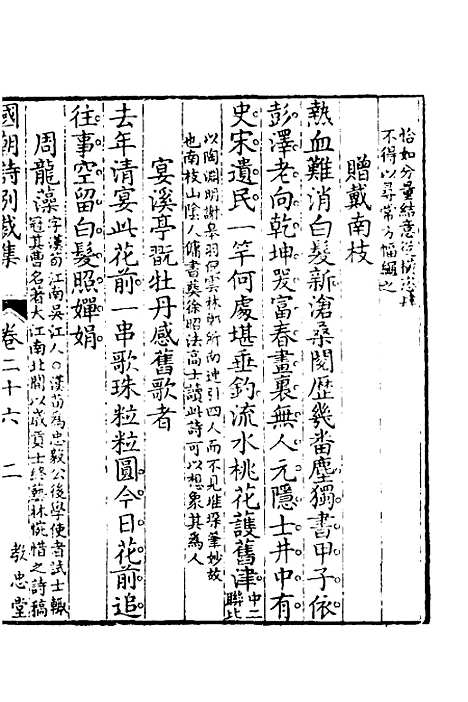 恰如分量結意從懷流出
不得以尋常方幅繩之
贈戴南枝
熱血難消白髮新滄桑閱歷幾番塵獨書甲子依
彭澤老向乾坤哭富春畫裏無人元隱士井中有
史宋遺民一竿何處堪垂釣流水桃花護舊津中二
聯皆
以陶淵明謝皋羽倪雲林鄭所南連引四人而不見堆垜筆妙故
也南枝山陰人傭書葬徐昭法高士讀此詩可以想象其爲人
宴溪亭翫牡丹感舊歌者
去年清宴此花前一串歌珠粒粒圓今日花前追
往事空留白髮照嬋娟
周龍藻字漢荀江南吳江人○漢荀為忠毅公後學使者試士輒
冠其曹名著大江南北闈以歲貢士終藝林惋惜之詩稿
國朝詩別裁集 卷二十六 二 教忠堂